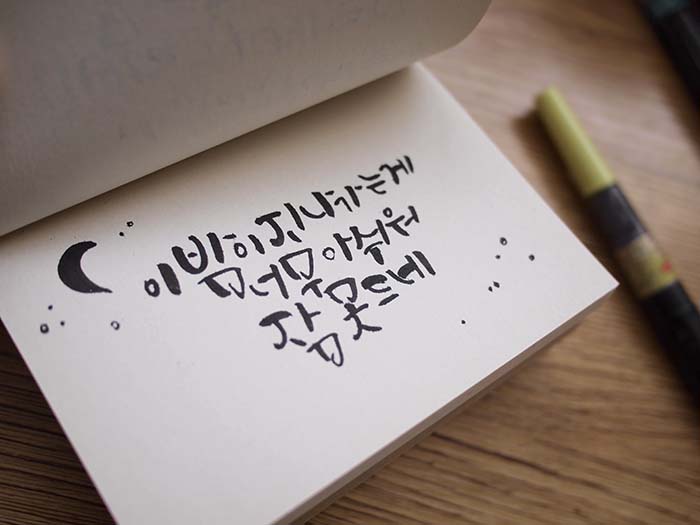 이 밤이 지나가는게
너무 아쉬워
잠 못 드네